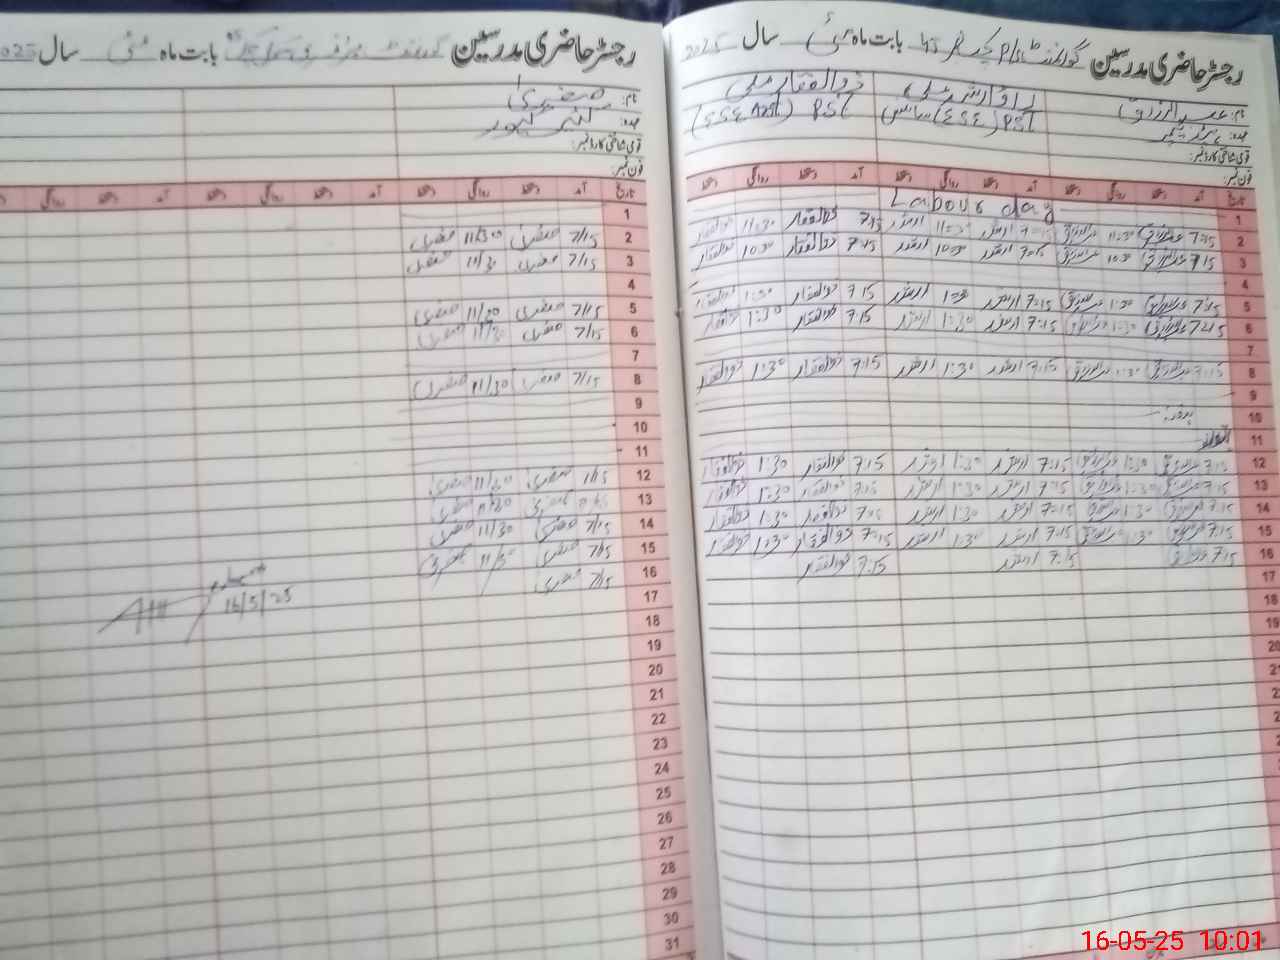 رجسٹر حاضری مدرسین گورنمنٹ P/S چک نمبر بابت ماہ مئی سال 2025
نام: عبدالرزاق راؤ ارشد علی ذوالفقار علی
عہدہ: PST (ESE) سائنس PST (ESE Arts)
قومی شناختی کارڈ نمبر:
فون نمبر:
تاریخ آمد دستخط روانگی دستخط آمد دستخط روانگی دستخط آمد دستخط روانگی دستخط
1 Labour day
2 7:15 عبدالرزاق 11:30 عبدالرزاق 7:15 ارشد 11:30 ارشد 7:15 ذوالفقار 11:30 ذوالفقار
3 7:15 عبدالرزاق 10:30 عبدالرزاق 7:15 ارشد 10:30 ارشد 7:15 ذوالفقار 10:30 ذوالفقار
4
5 7:15 عبدالرزاق 1:30 عبدالرزاق 7:15 ارشد 1:30 ارشد 7:15 ذوالفقار 1:30 ذوالفقار
6 7:15 عبدالرزاق 1:30 عبدالرزاق 7:15 ارشد 1:30 ارشد 7:15 ذوالفقار 1:30 ذوالفقار
7
8 7:15 عبدالرزاق 1:30 عبدالرزاق 7:15 ارشد 1:30 ارشد 7:15 ذوالفقار 1:30 ذوالفقار
9
10
11 اتوار
12 7:15 عبدالرزاق 1:30 عبدالرزاق 7:15 ارشد 1:30 ارشد 7:15 ذوالفقار 1:30 ذوالفقار
13 7:15 عبدالرزاق 1:30 عبدالرزاق 7:15 ارشد 1:30 ارشد 7:15 ذوالفقار 1:30 ذوالفقار
14 7:15 عبدالرزاق 1:30 عبدالرزاق 7:15 ارشد 1:30 ارشد 7:15 ذوالفقار 1:30 ذوالفقار
15 7:15 عبدالرزاق 1:30 عبدالرزاق 7:15 ارشد 1:30 ارشد 7:15 ذوالفقار 1:30 ذوالفقار
16 7:15 عبدالرزاق 7:15 ارشد 7:15 ذوالفقار
17
18
19
20
رجسٹر حاضری مدرسین گورنمنٹ بابت ماہ مئی سال 2025
نام: صغریٰ
عہدہ:
قومی شناختی کارڈ نمبر:
فون نمبر:
تاریخ آمد دستخط روانگی دستخط آمد دستخط روانگی دستخط آمد دستخط روانگی
1
2 7/15 صغریٰ 11/30 صغریٰ
3 7/15 صغریٰ 11/30 صغریٰ
4
5 7/15 صغریٰ 11/30 صغریٰ
6 7/15 صغریٰ 11/30 صغریٰ
7
8 7/15 صغریٰ 11/30 صغریٰ
9
10
11
12 7/15 صغریٰ 11/30 صغریٰ
13 7/15 صغریٰ 11/30 صغریٰ
14 7/15 صغریٰ 11/30 صغریٰ
15 7/15 صغریٰ 11/30 صغریٰ
16 7/15 صغریٰ
16/5/25
17
18
19
20
21
22
23
24
25
26
27
28
29
30
31
16-05-25 10:01